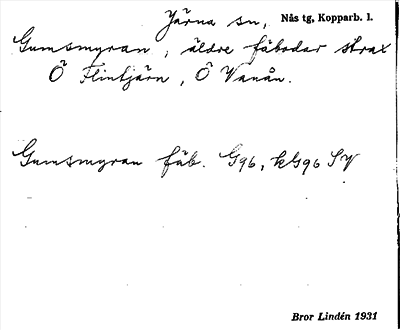 Järna sn, Nås tg, Kopparb. l.
Gumsmyran, äldre fäbodar strax
Ö Flintjärn, Ö Vanån.
Gumsmyran fäb. G96, kG96 SV
Bror Lindén 1931